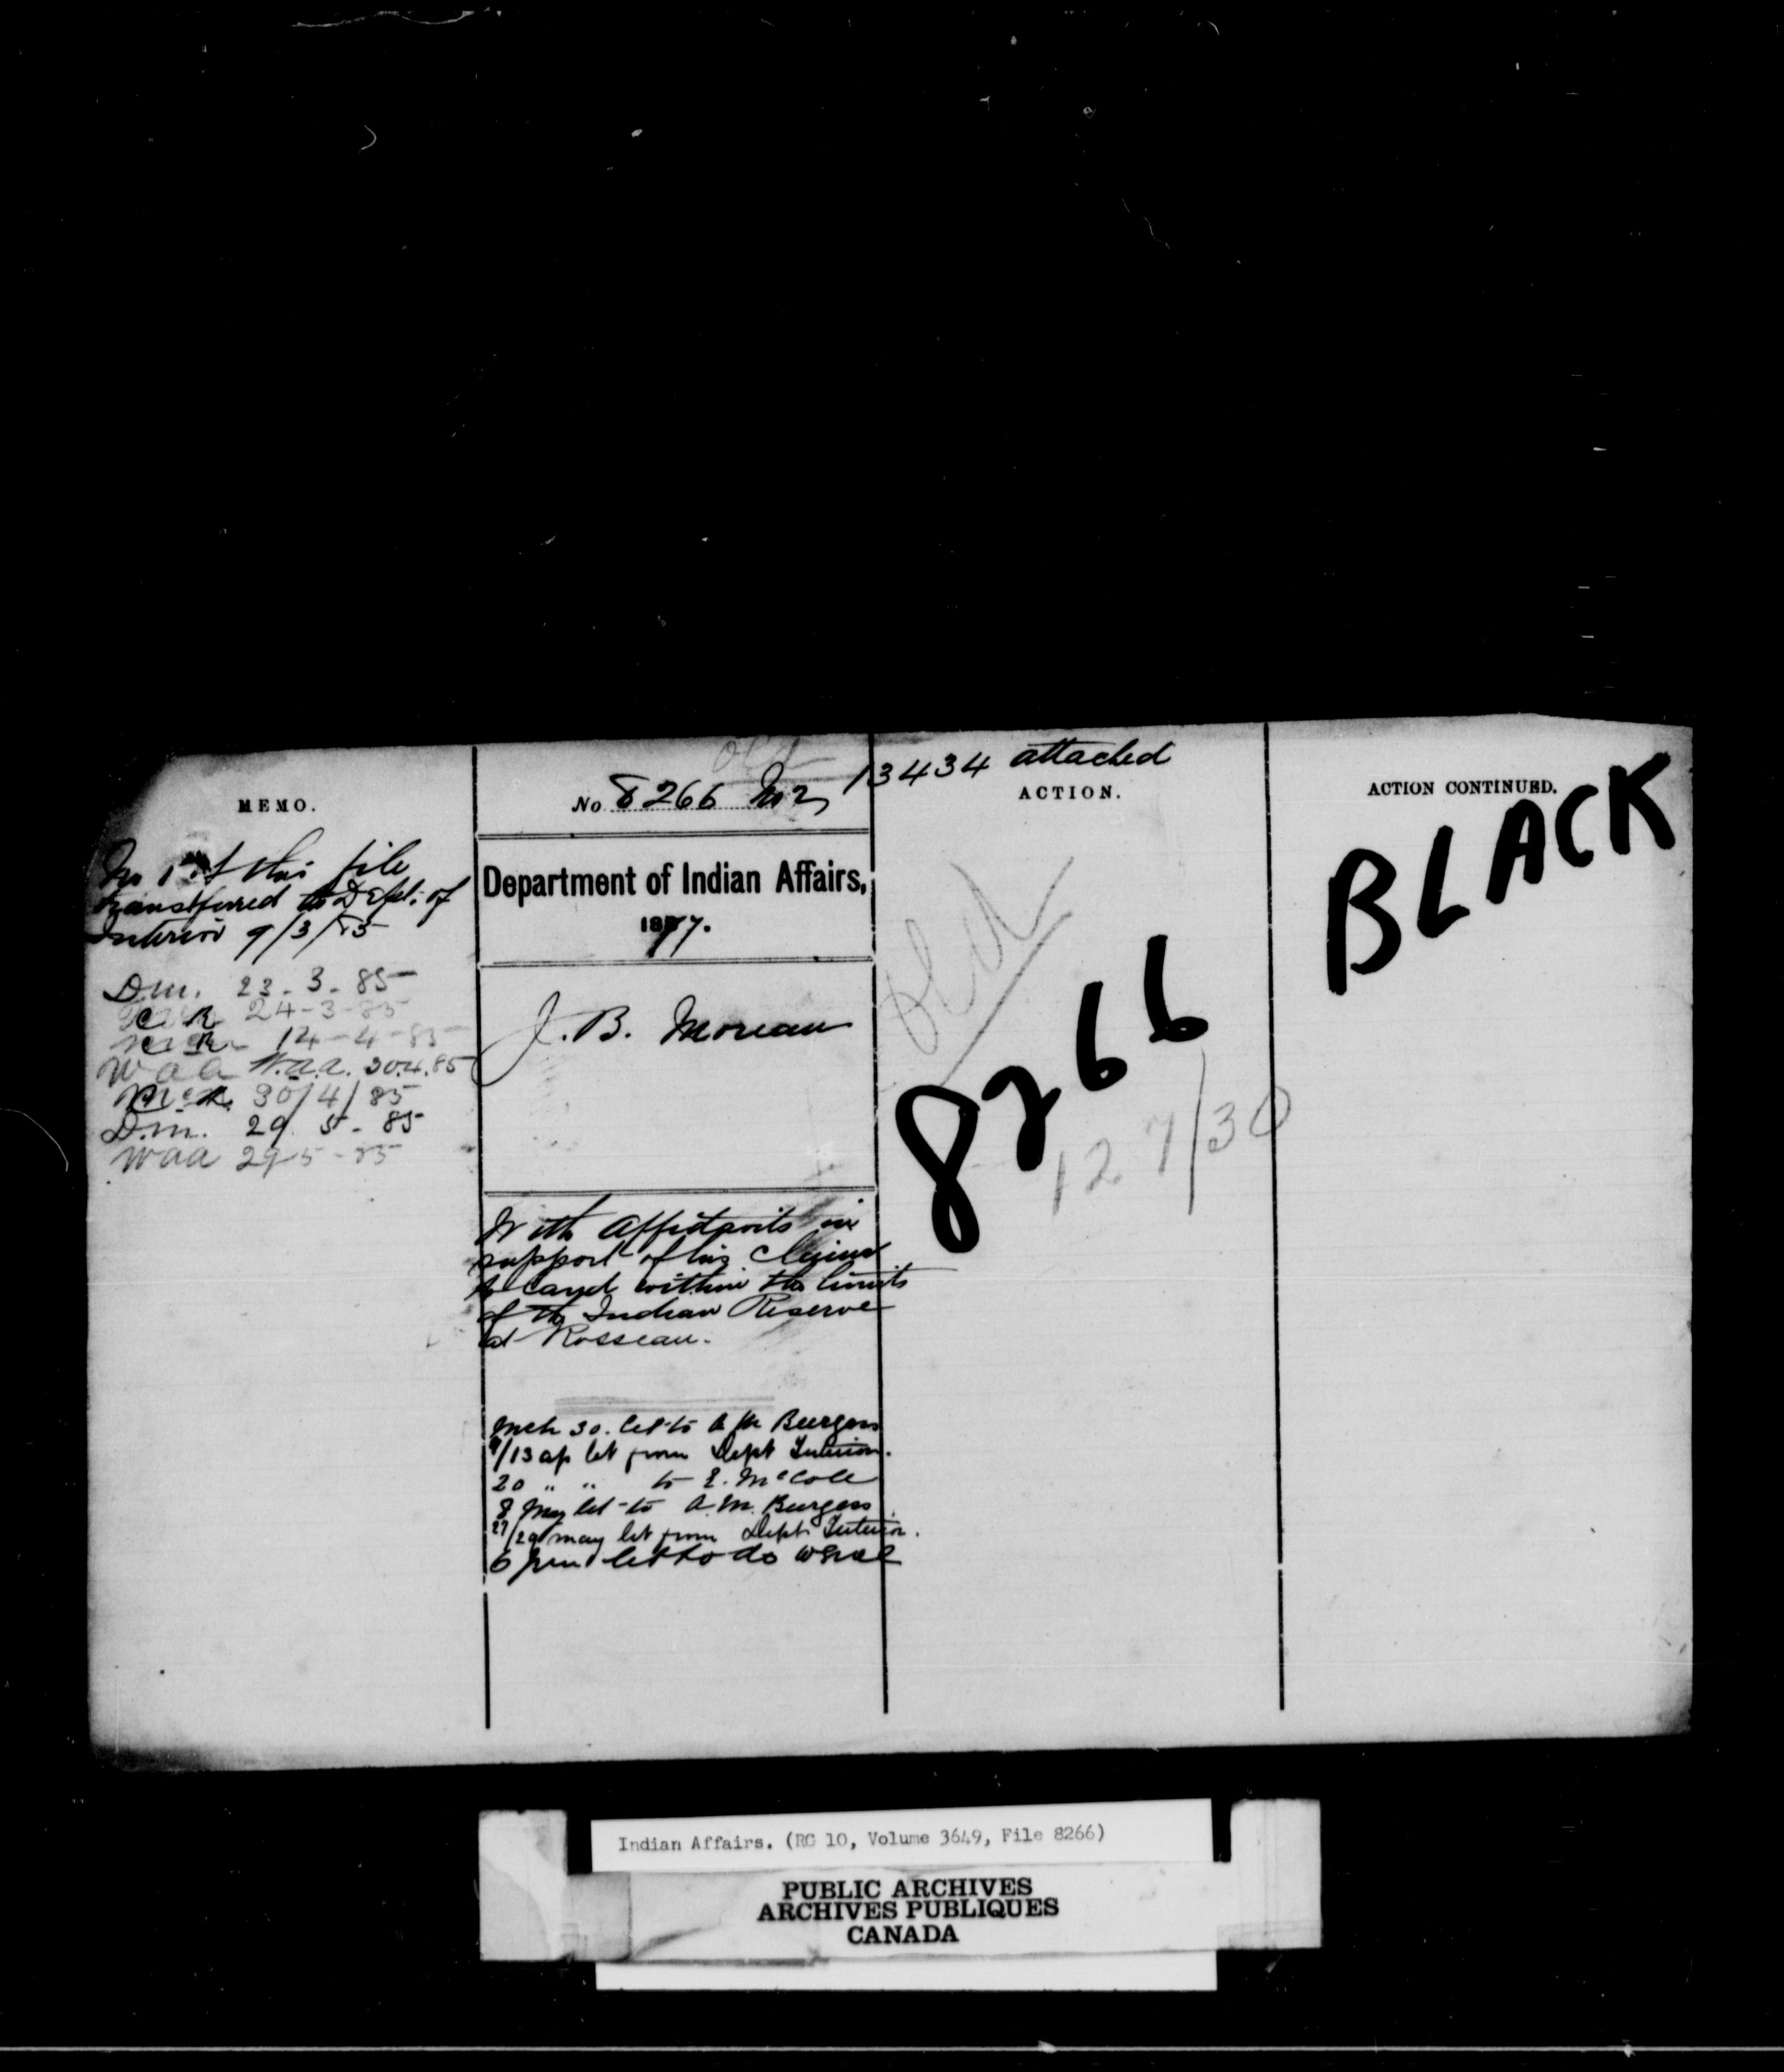 MEMO.
No 1 of this file
transferred to Dept. of
Interior 9/3/85
Dm. 23-3-85
24-3-85
14-4-85
waa W.a.a. 30.4.85
30/4/85
D.m. 29 5-85
waa 29-5-85
old
No 8266 No 2
Department of Indian Affairs,
1877.
J. B. Moreau
With Affidavits in
support of his claim
to land within the limits
of the Indian Reserve
at Rosseau.
Mch 30. let to A M Burgess
9/13 ap let from Dept Interior.
20 " " to E. McColl
8 May let to A. M. Burgess
27/29 may let from Dept Interior.
6 June let to do
13434 attached
ACTION.
old
8266
127/30
ACTION CONTINUED.
BLACK
Indian Affairs. (RG 10, Volume 3649, File 8266)
PUBLIC ARCHIVES
ARCHIVES PUBLIQUES
CANADA